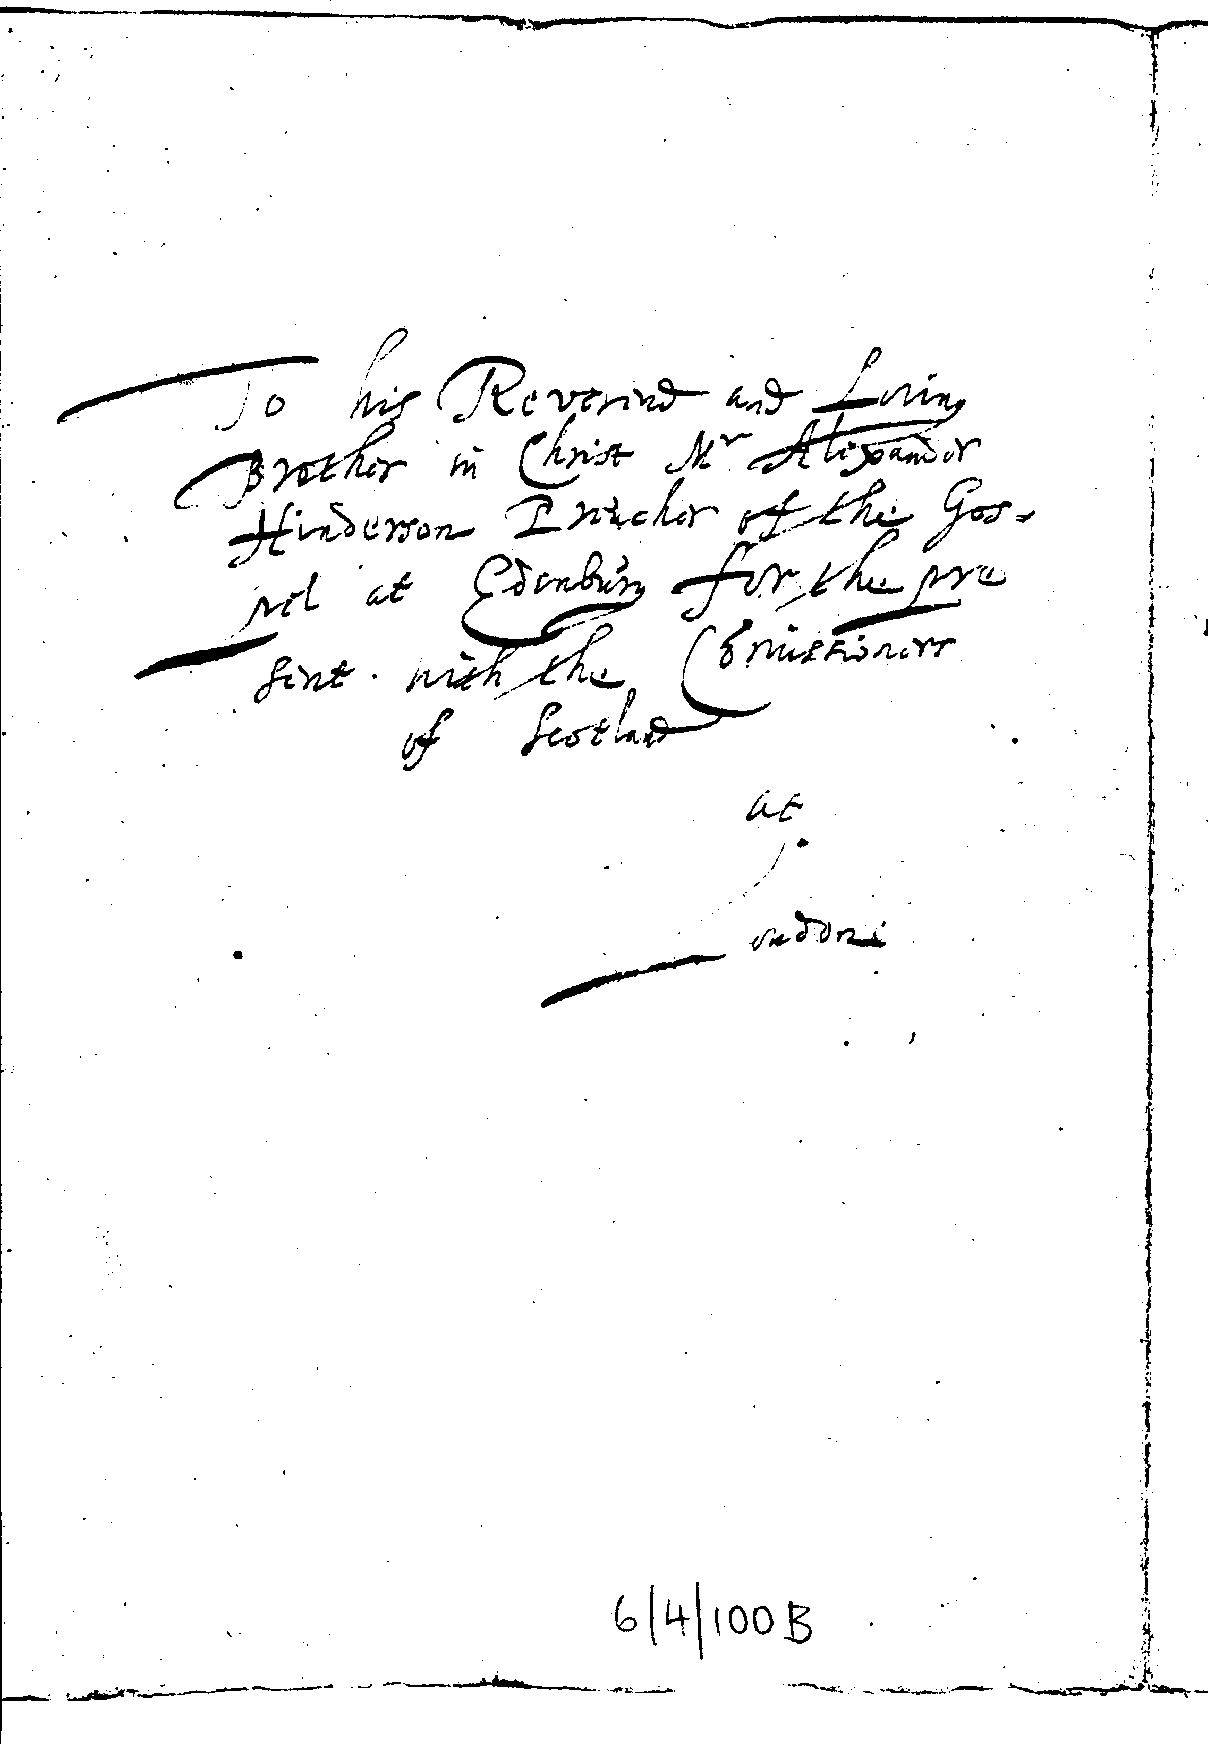 To his Reverend and Loving
Brother in Christ Mr Alexander
Hinderson Preacher of the Gos-
pel at Edenburg for the pre
sent with the Comissioners
of Scotland
at
London
6/4/100B